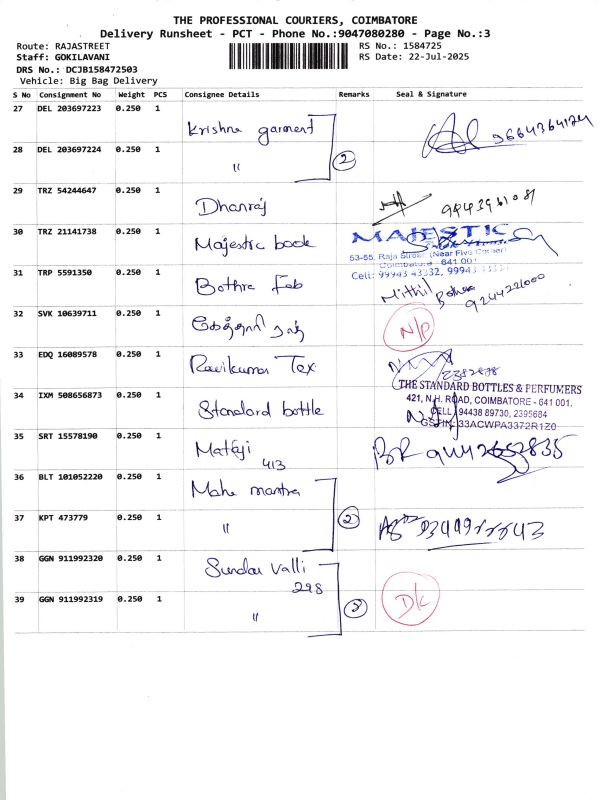 THE PROFESSIONAL COURIERS, COIMBATORE
Delivery Runsheet - PCT - Phone No.:9047080280 - Page No.:3
Route: RAJASTREET
RS No.: 1584725
Staff: GOKILAVANI
RS Date: 22-Jul-2025
DRS No.: DCJB158472503
Vehicle: Big Bag Delivery
S No Consignment No Weight PCS Consignee Details Remarks Seal & Signature
27 DEL 203697223 0.250 1 Krishna garment 9664364124
28 DEL 203697224 0.250 1 " 2
29 TRZ 54244647 0.250 1 Dhanraj
30 TRZ 21141738 0.250 1 Majestic book MAJESTIC
53-55, Raja Street, (Near Five Corner)
Coimbatore - 641 001
Cell: 99943 43332, 99943 43331
31 TRP 5591350 0.250 1 Bothra Fab Mithil Bothra 9244221000
32 SVK 10639711 0.250 1 N/P
33 EDQ 16089578 0.250 1 Ravikumar Tex 2382898
34 IXM 508656873 0.250 1 Standard bottle THE STANDARD BOTTLES & PERFUMERS
421, N.H. ROAD, COIMBATORE - 641 001.
CELL : 94438 89730, 2395684
GSTIN: 33ACWPA3372R1Z0
35 SRT 15578190 0.250 1 Mataji 413 BR
36 BLT 101052220 0.250 1 Maha mantra
37 KPT 473779 0.250 1 " 2
38 GGN 911992320 0.250 1 Sundar valli 298
39 GGN 911992319 0.250 1 " 2 DK